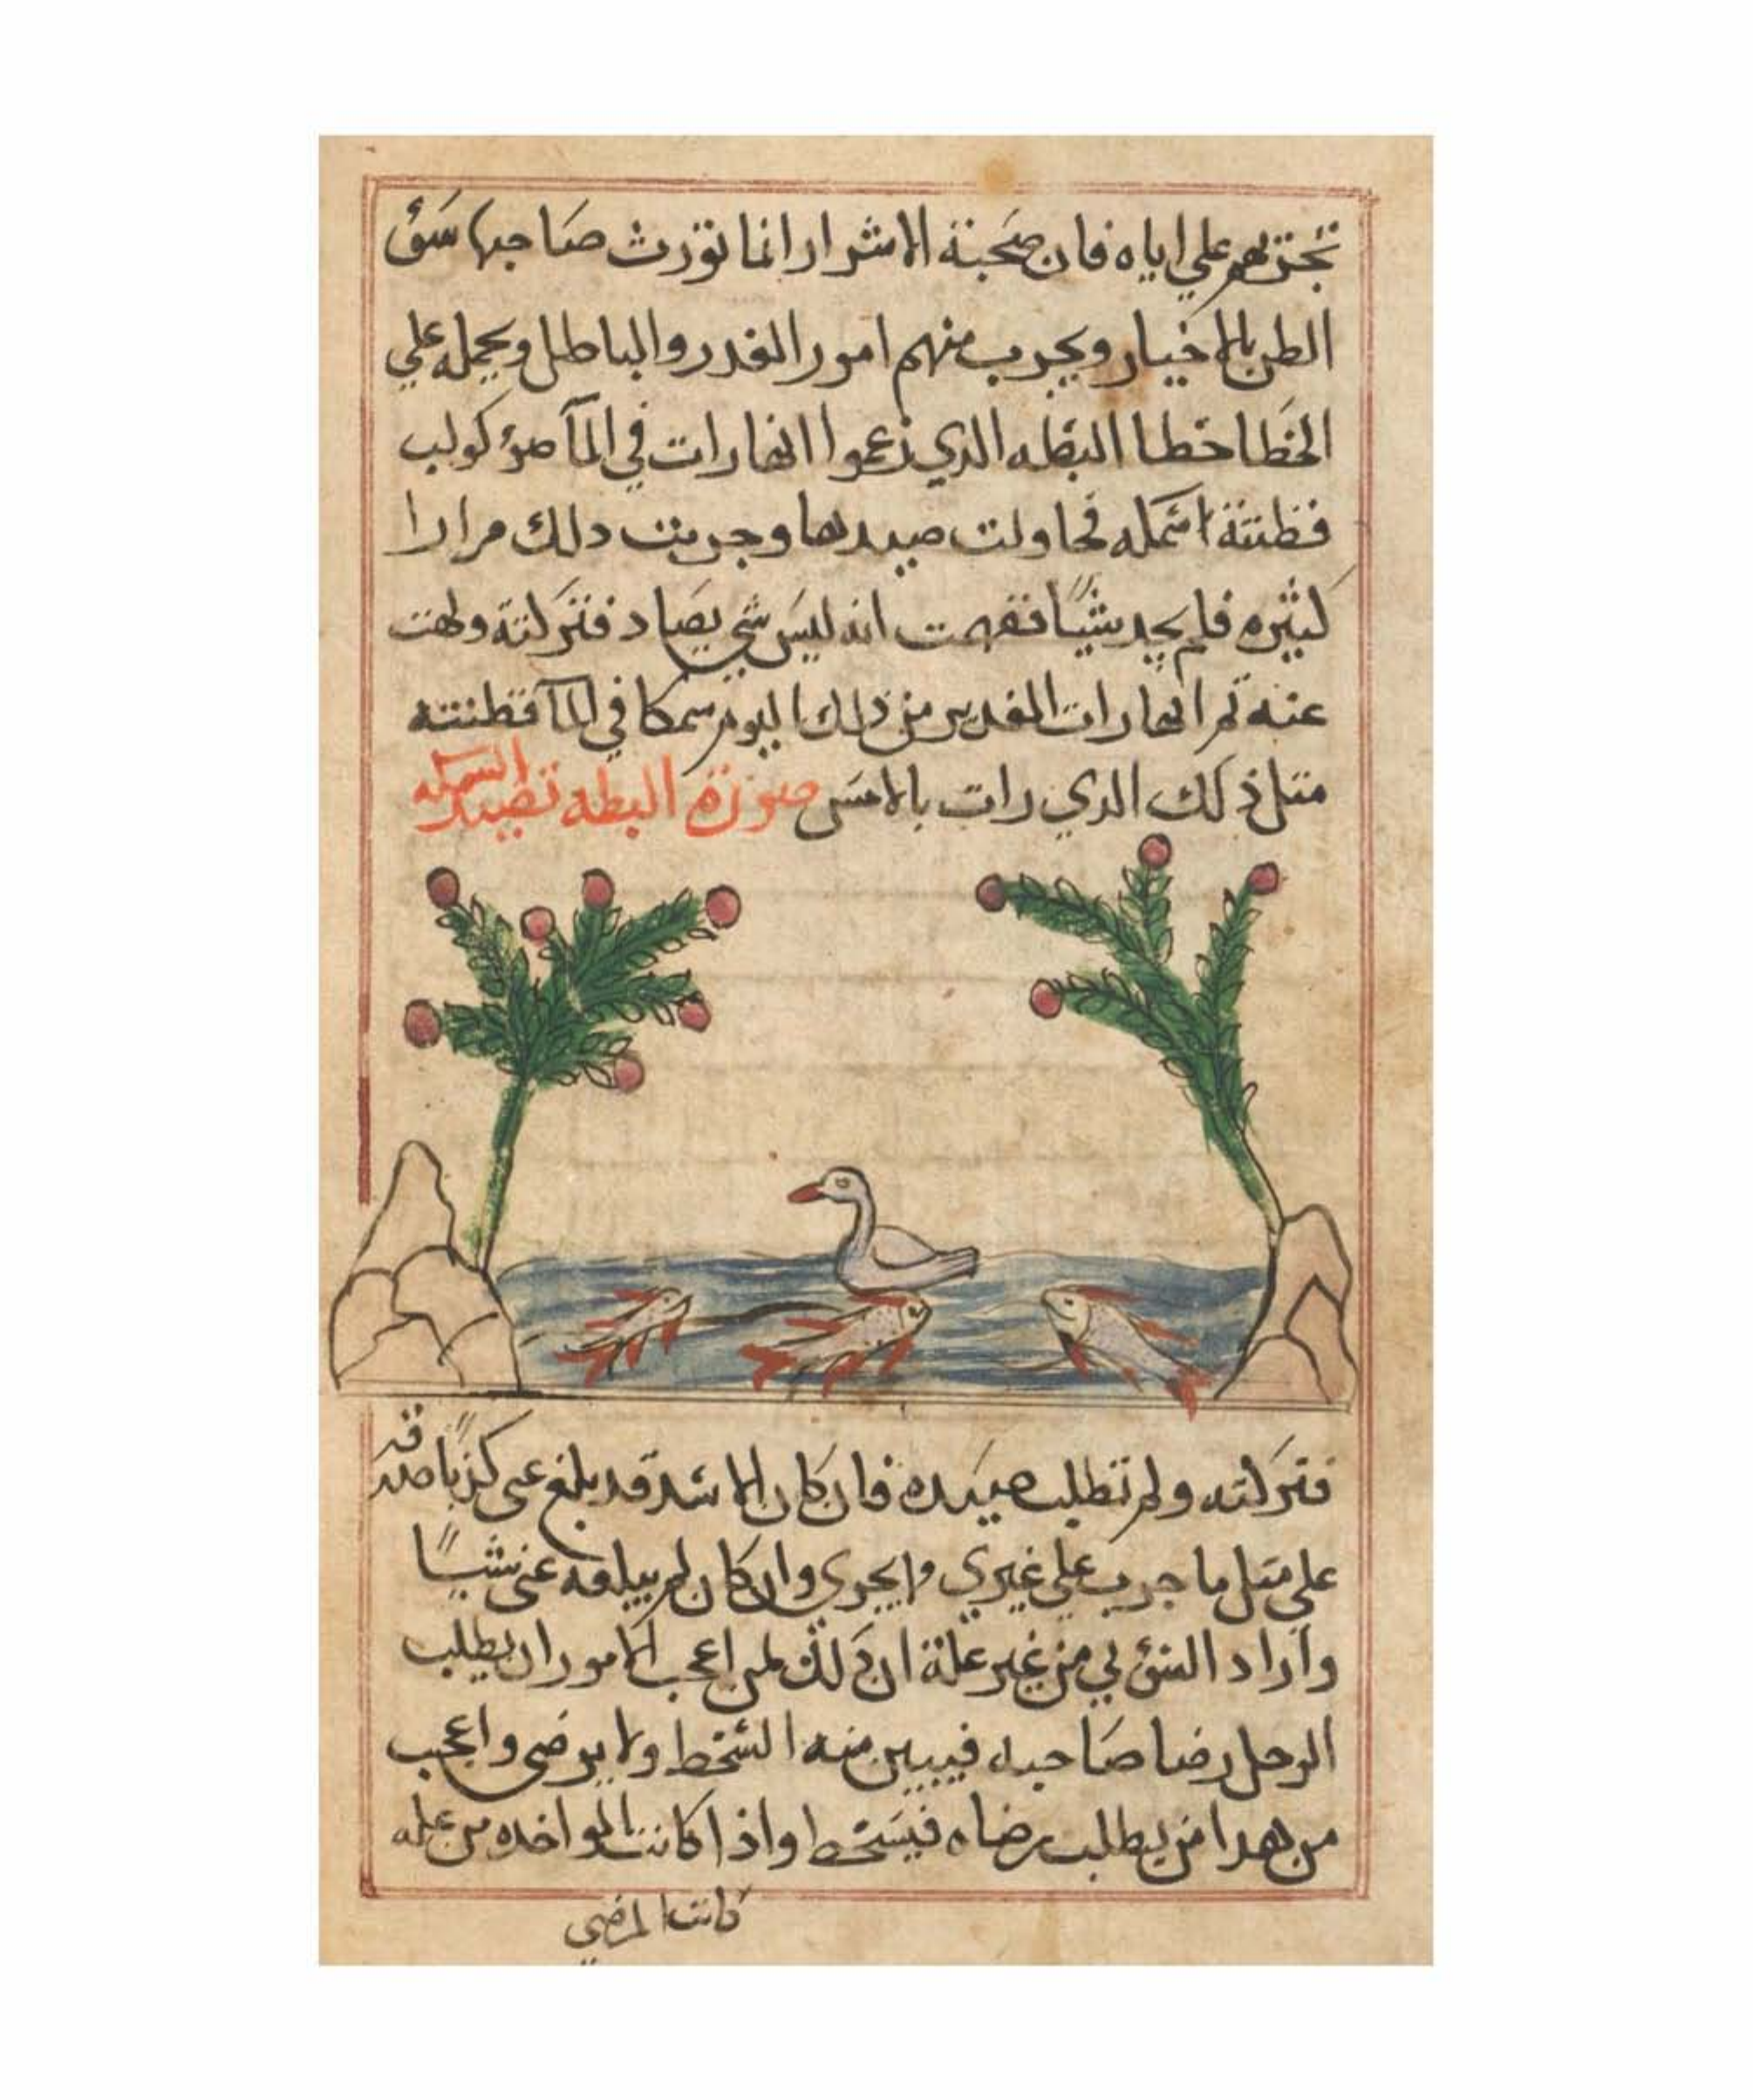 تجربتهم علي اياه فان صحبة الاشرار انما تورث صاحبها سؤ
الظن بالاخيار ويجرب منهم امور الغدر والباطل ويحمله علي
الخطا خطا البطه الدي زعموا انها رات في المآ ضؤ كوكب
فظنته سمكه فحاولت صيدها وجربت دلك مرارا
كثيره فلم يجد شيًا ففهمت انه ليس شي يصاد فتركته ولهت
عنه ثم انها رات الغد من ذلك اليوم سمكا في المآ فظنته
مثل ذلك الدي رات بالامس صورة البطه تصيد السمكه
فتركته ولم تطلب صيده فان كان الاسد قد بلغ عني كذبًا صدقه
علي مثل ما جرب علي غيري وان كان لم يبلغه عني شيًا
واراد السؤ بي من غير علة ان ذلك لمن اعجب الامور ان يطلب
الرجل رضا صاحبه فيبين منه السخط ولا يرضي واعجب
من هدا من يطلب رضاه فيسخط واذا كانت المواخده من عله
كانت المرضي